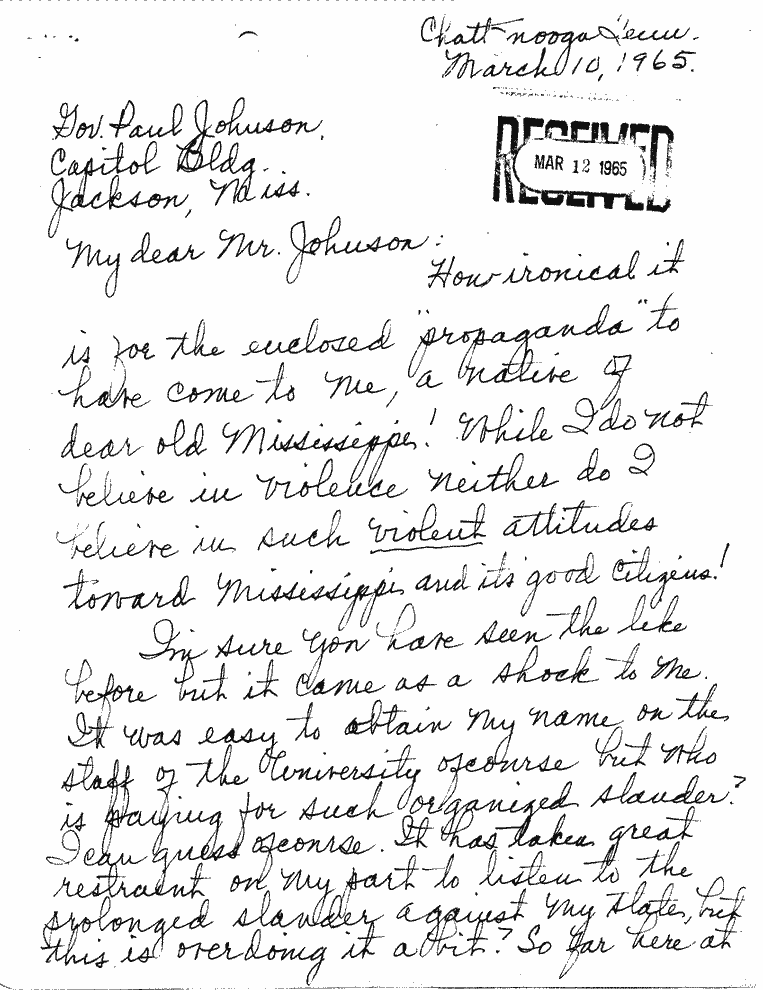 Chattanooga Tenn.
March 10, 1965.
Gov. Paul Johnson,
Capitol Bldg.
Jackson, Miss.
RECEIVED
MAR 12 1965
My dear Mr. Johnson:
How ironical it
is for the enclosed "propaganda" to
have come to me, a native of
dear old Mississippi! While I do not
believe in violence neither do I
believe in such violent attitudes
toward Mississippi and it's good citizens!
I'm sure you have seen the like
before but it came as a shock to me.
It was easy to obtain my name on the
staff of the University ofcourse but who
is paying for such organized slander?
I can guess ofcourse. It has taken great
restraint on my part to listen to the
prolonged slander against my state, but
this is overdoing it a bit? So far here at